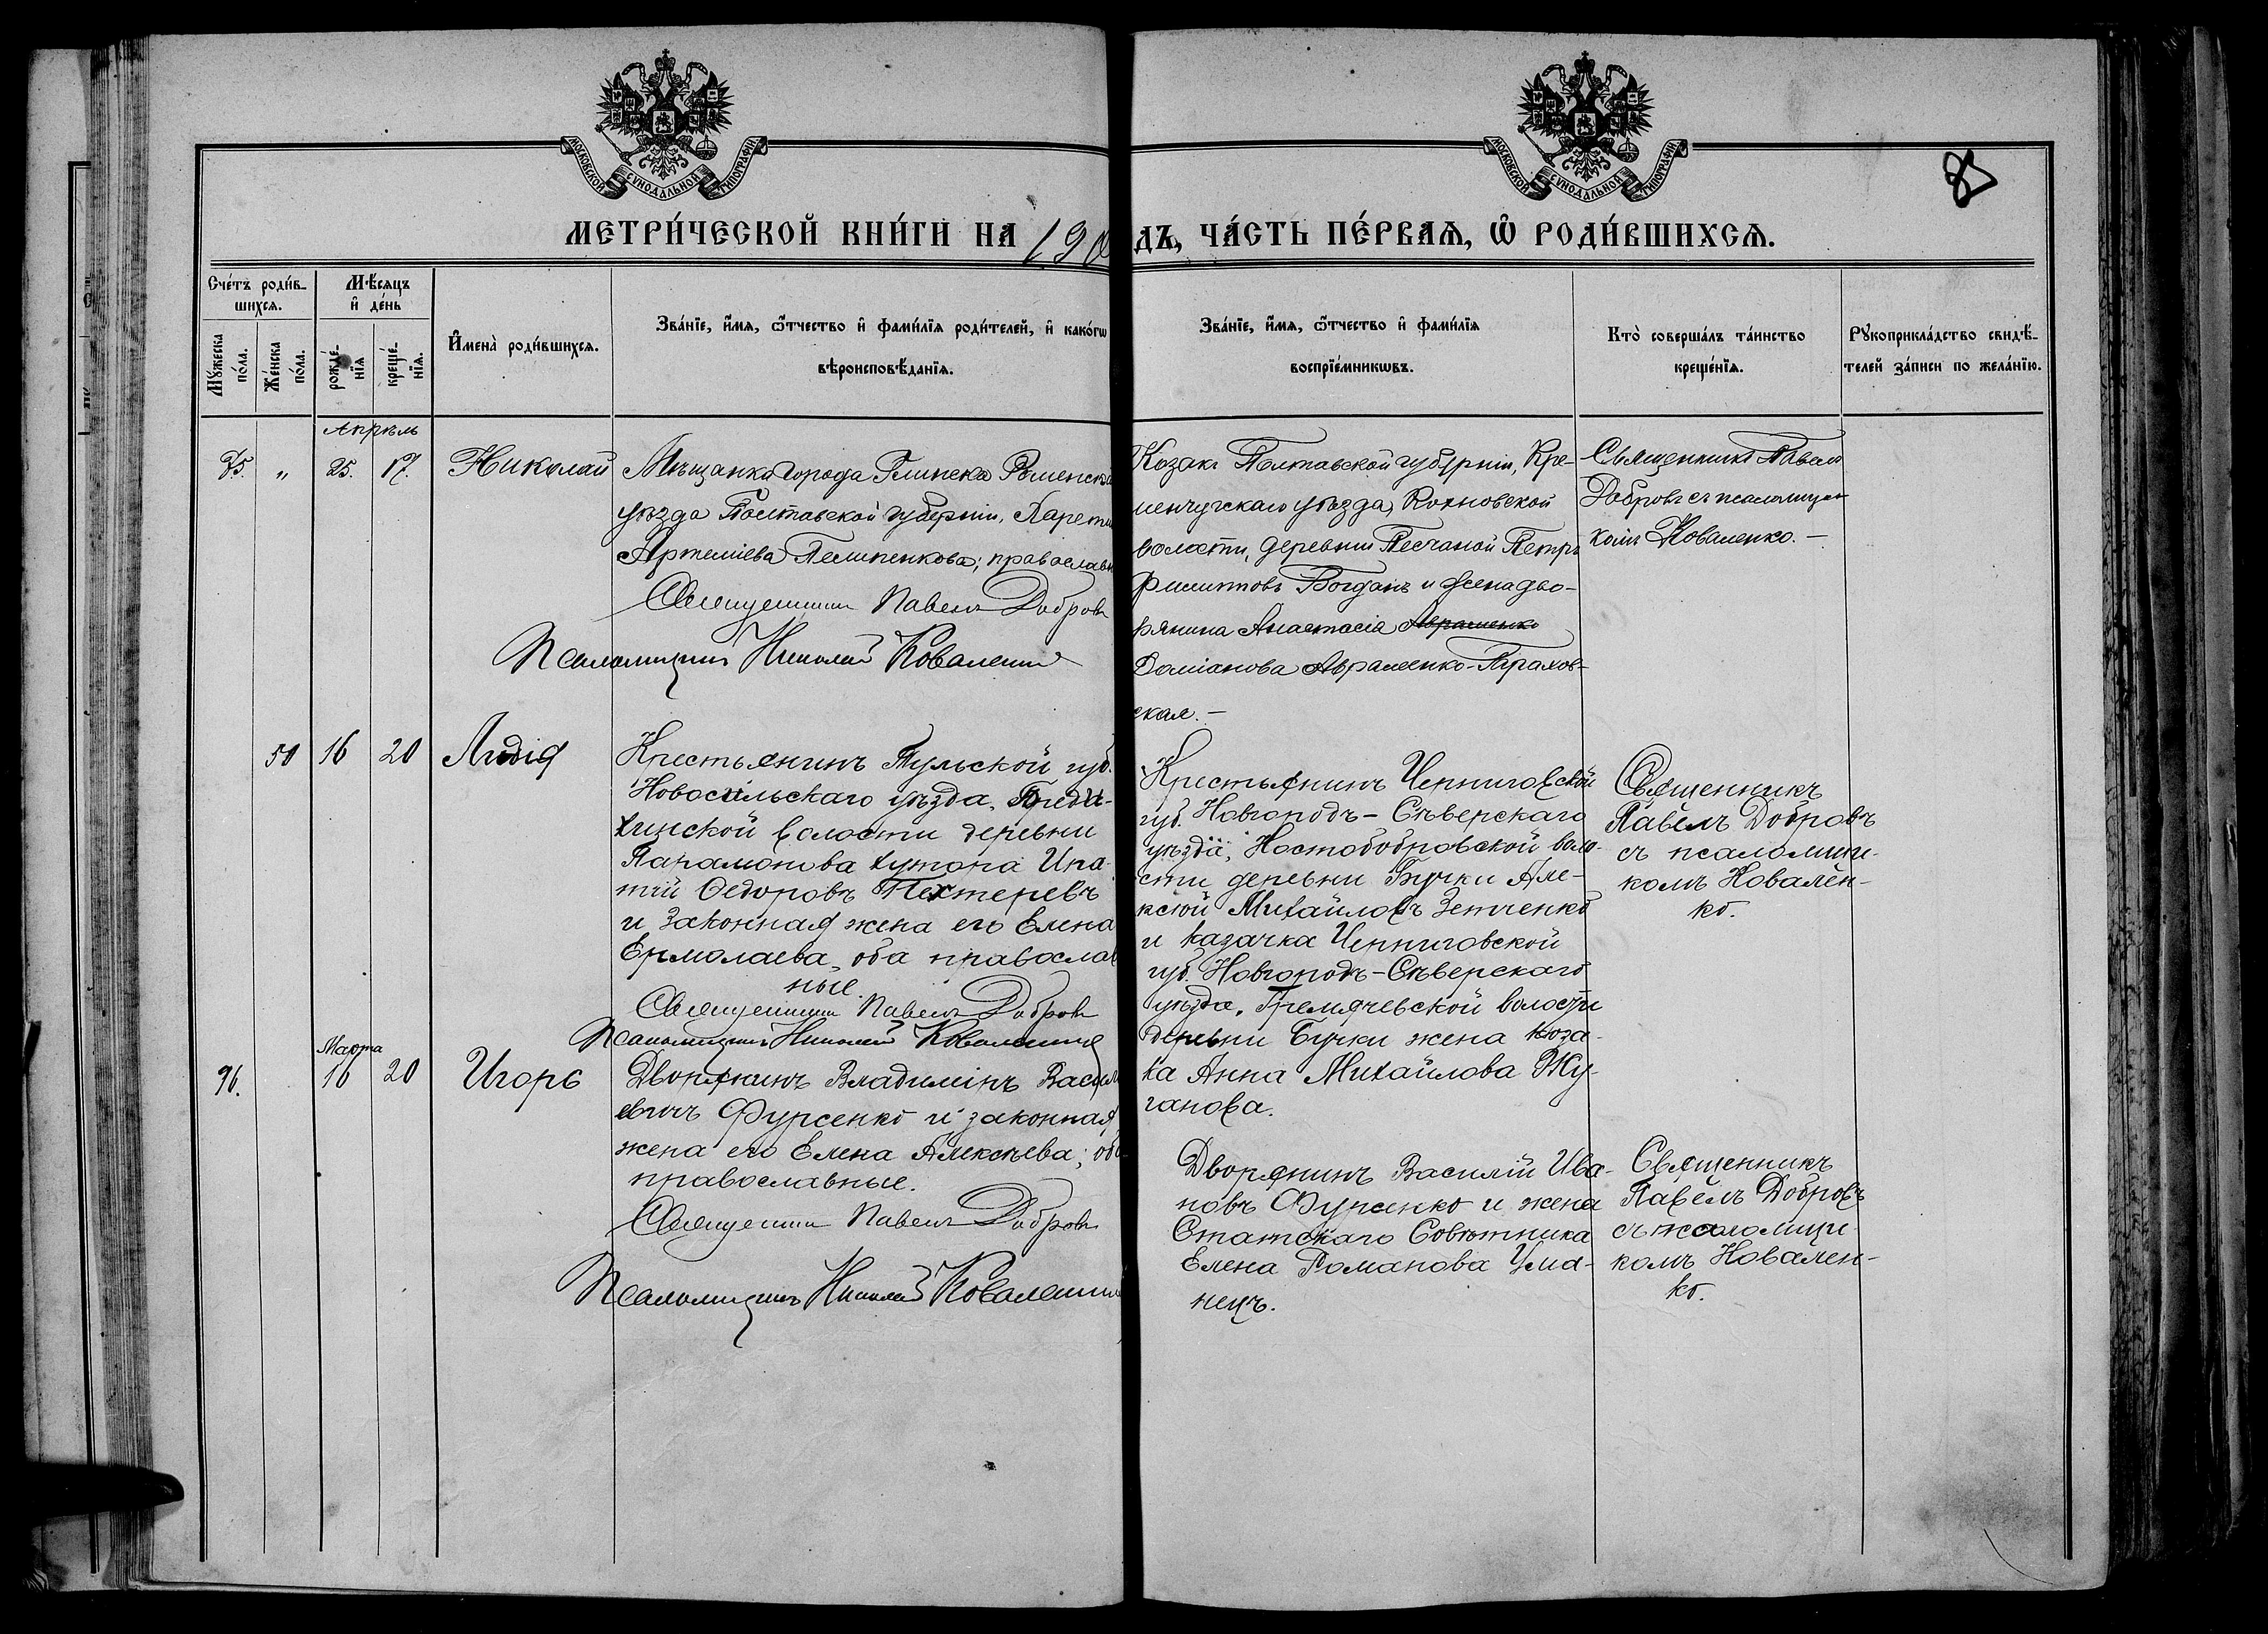 МОСКОВСКОЙ СѴНОДАЛЬНОЙ ТИПОГРАФІИ
МОСКОВСКОЙ СѴНОДАЛЬНОЙ ТИПОГРАФІИ
МЕТРИ́ЧЕСКОЙ КНИ́ГИ НА 190
ДЪ, ЧА́СТЬ ПЕ́РВАѦ, Ѡ҆ РОДИ́ВШИХСѦ.
Сче́тъ роди́в-
шихсѧ.
Мѣ́сѧцъ
и҆ де́нь
Мꙋ́жеска
по́ла.
Же́нска
по́ла.
рожде́-
нїѧ
креще́-
нїѧ.
И҆мена̀ роди́вшихсѧ.
Зва́нїе, и҆́мѧ, ѻ҆́тчество и҆ фами́лїѧ роди́телей, и҆ како́гѡ
вѣроисповѣ́данїѧ.
Зва́нїе, и҆́мѧ, ѻ҆́тчество и҆ фами́лїѧ
воспрїе́мникѡвъ.
Кто̀ соверша́лъ та́инство
креще́нїѧ.
Рꙋкоприкла́дство свидѣ́-
телей за́писи по жела́нїю.
Апрѣль
25. 17. Николай
Мѣщанка города Глинска Роменска
уѣзда Полтавской губерніи,
Артеміева Пелипенкова; православн
Священникъ Павелъ Добровъ
Псаломщикъ Николай Коваленко
Козакъ Полтавской губерніи, Кре-
менчугскаго уѣзда,
волости, деревни Песчаной Петръ
Филиповъ Богданъ и жена дво-
рянина Анастасія Авраменко
Даміанова Авраменко-Трахов-
ская.-
Священникъ Павелъ
Добровъ съ псаломщи
комъ Коваленко.-
50 16 20 Лидія
Крестьянинъ Тульской губ.
Новосильскаго уѣзда,
хинской волости деревни
Парамонова хутора Ипа-
тій Ѳедоровъ Пехтеревъ
и законная жена его Елена
Ермолаева, оба православ
ные.
Священникъ Павелъ Добровъ
Псаломщикъ Николай Коваленко
Крестьянинъ Черниговской
губ. Новгородъ-Сѣверскаго
уѣзда, Костобобровской воло-
сти деревни Бучки Але-
ксѣй Михайловъ Зетченко
и казачка Черниговской
губ. Новгородъ-Сѣверскаго
уѣзда, Гремячевской волости
деревни Бучки жена коза-
ка Анна Михайлова Жу-
ганова.
Священникъ
Павелъ Добровъ
съ псаломщи-
комъ Ковален-
ко.
Марта
96. 16 20 Игорь
Дворянинъ Владиміръ Васил
евичъ Фурсенко и законная
жена его Елена Алексѣева; оба
православные.
Священникъ Павелъ Добровъ
Псаломщикъ Николай Коваленко
Дворянинъ Василій Ива-
новъ Фурсенко и жена
Статскаго Совѣтника
Елена Романова Ума-
нецъ.
Священникъ
Павелъ Добровъ
съ псаломщи
комъ Ковален-
ко.